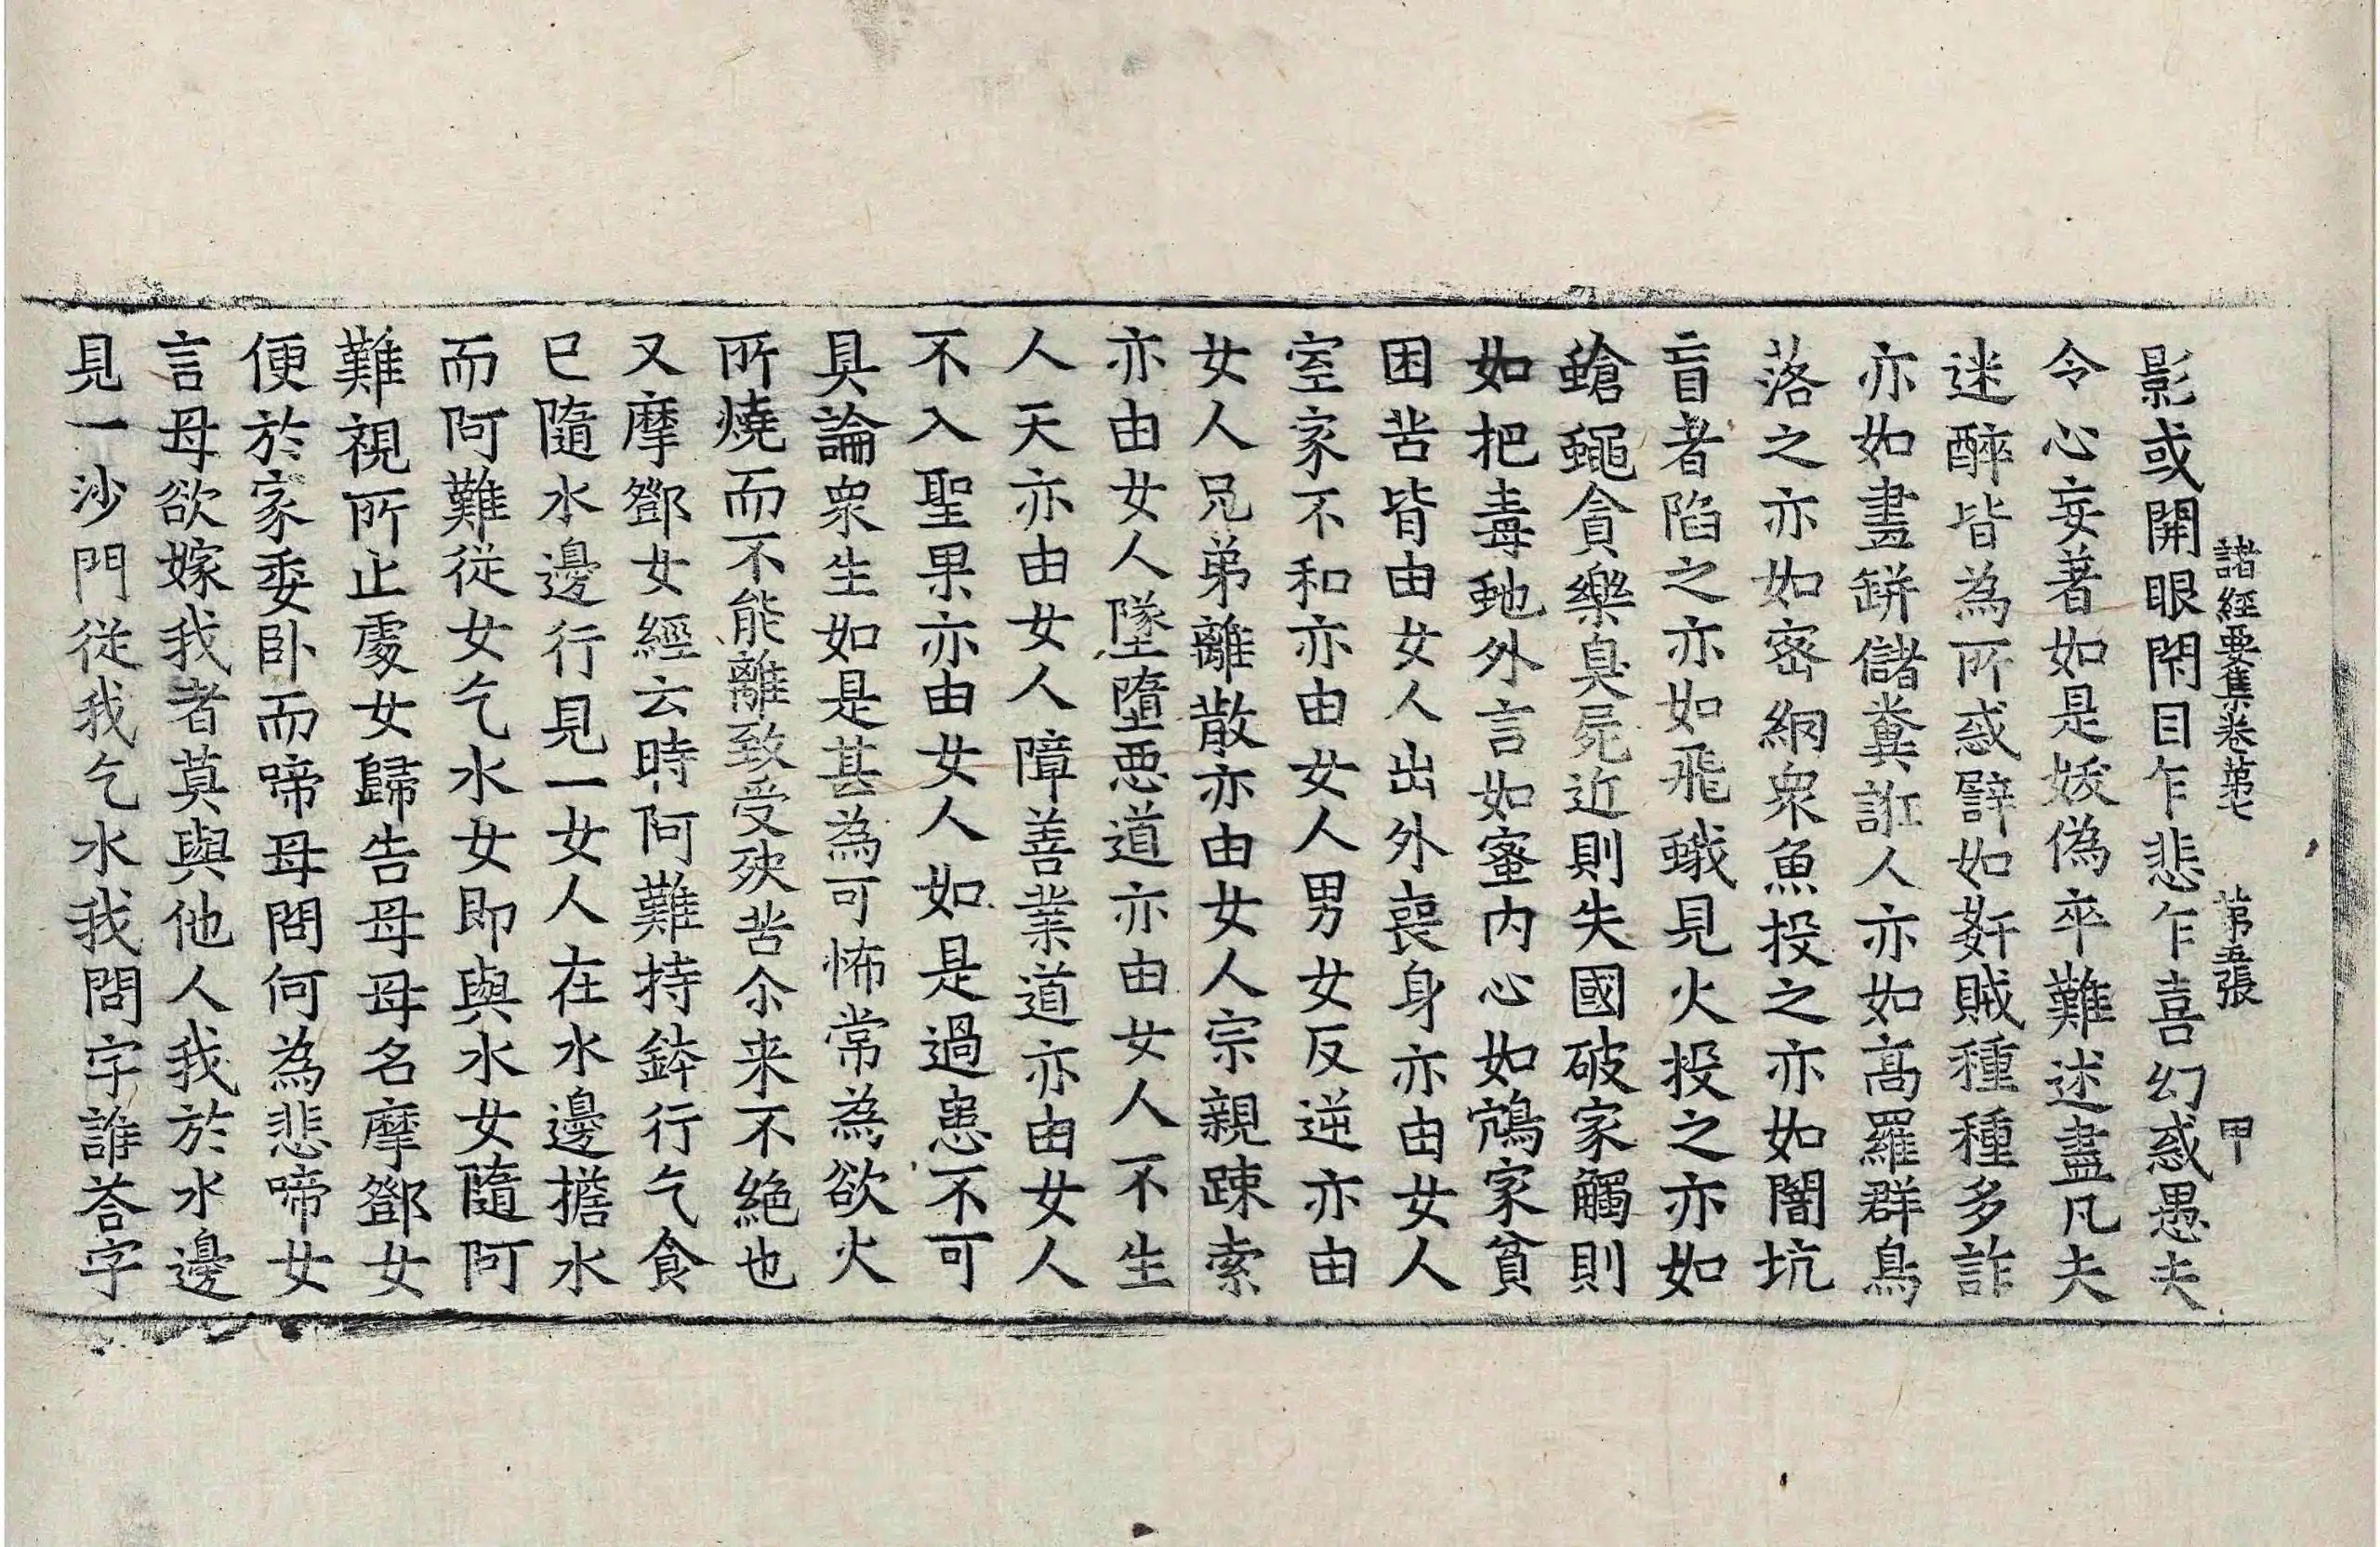 諸經要集卷第七 第五張 甲
影或開眼閇目乍悲乍喜幻惑愚夫
令心妄著如是妖偽卒難述盡凡夫
迷醉皆為所惑譬如姧賊種種多詐
亦如畫缾儲糞誑人亦如高羅群鳥
落之亦如密網衆魚投之亦如闇坑
盲者陷之亦如飛蛾見火投之亦如
蒼蠅貪樂臭屍近則失國破家觸則
如把毒虵外言如蜜内心如鴆家貧
困苦皆由女人出外喪身亦由女人
室家不和亦由女人男女反逆亦由
女人兄弟離散亦由女人宗親踈索
亦由女人墜墮惡道亦由女人不生
人天亦由女人障善業道亦由女人
不入聖果亦由女人如是過患不可
具論衆生如是甚為可怖常為欲火
所燒而不能離致受殃苦尒来不絶也
又摩鄧女經云時阿難持鉢行乞食
已隨水邊行見一女人在水邊擔水
而阿難從女乞水女即與水女隨阿
難視所止處女歸告母母名摩鄧女
便於家委卧而啼母問何為悲啼女
言母欲嫁我者莫與他人我於水邊
見一沙門從我乞水我問字誰荅字